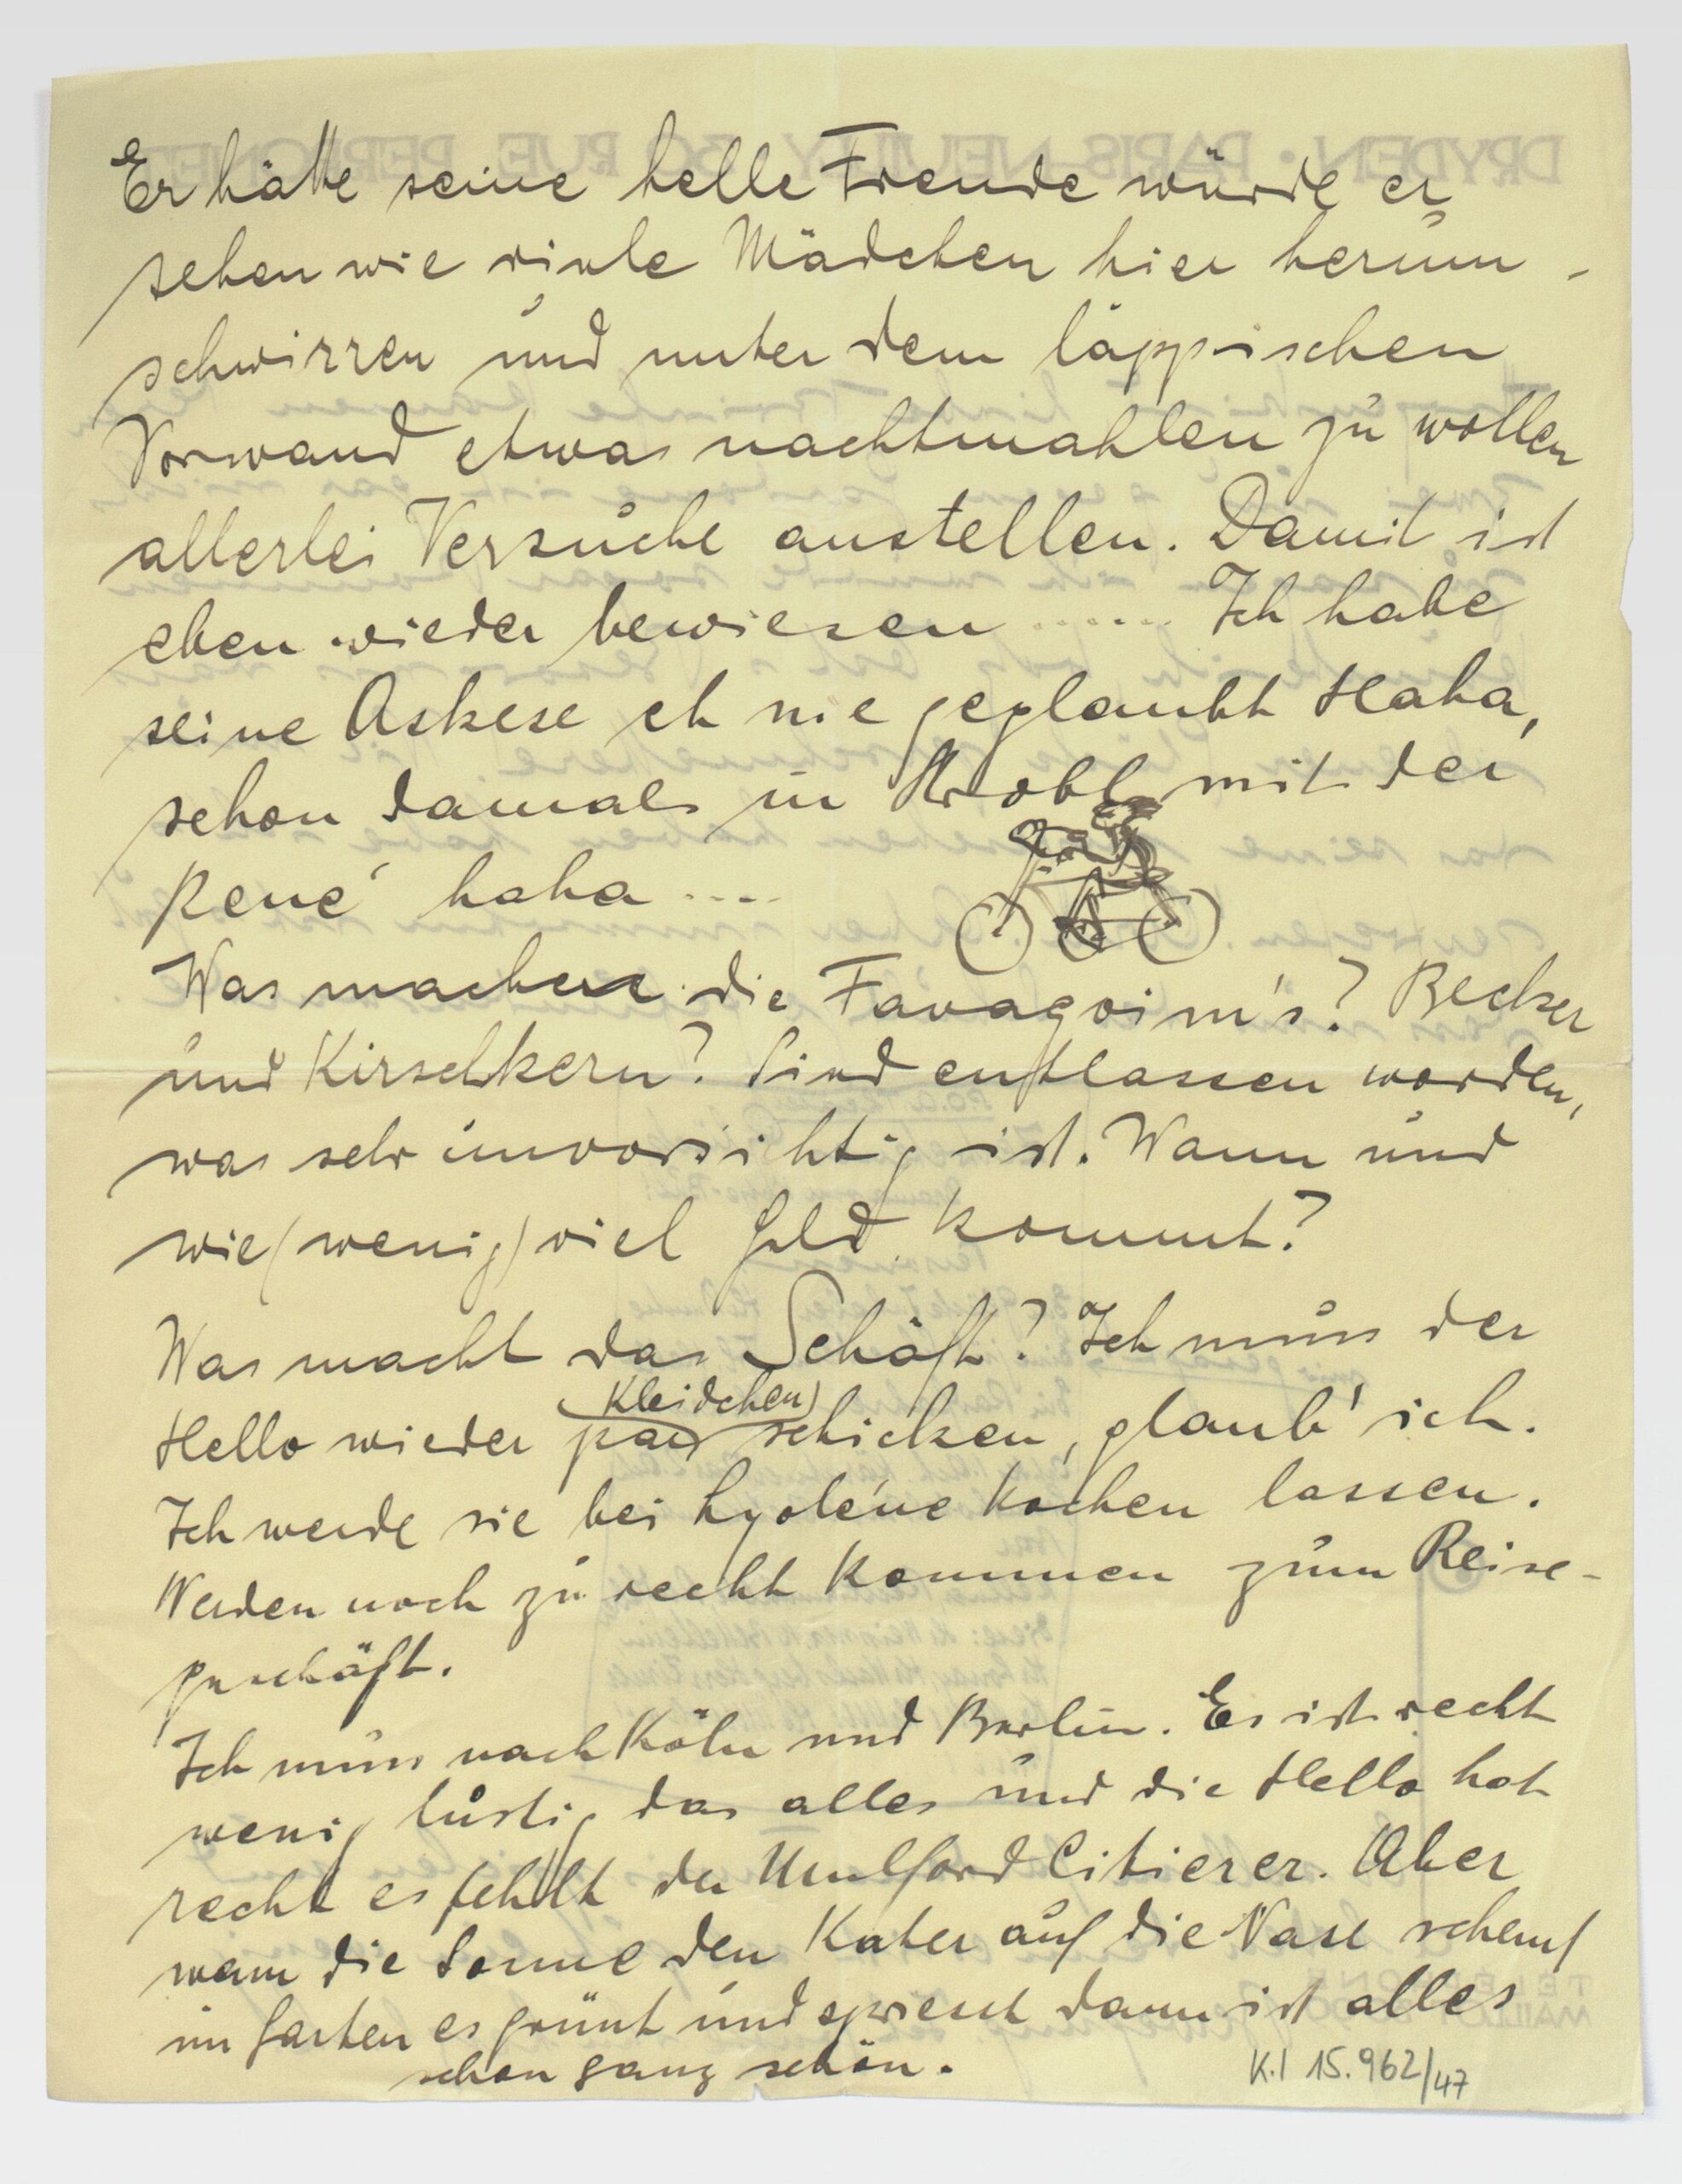 Er hätte seine helle Freude würde er
sehen wie viele Mädchen hier herum-
schwirren und unter dem läppischen
Vorwand etwas nachtmahlen zu wollen
allerlei Versuche anstellen. Damit ist
eben wieder bewiesen ...... Ich habe
seine Askese eh nie geglaubt Haha,
schon damals in Strobl mit der
René haha ....
Was machen die Favagoim's? Becker
und Kirschkern? Sind entlassen worden,
was sehr unvorsichtig ist. Wann und
wie (wenig) viel Geld kommt?
Was macht das Schäft? Ich muss der
Kleidchen
Hello wieder paar schicken, glaub' ich.
Ich werde sie bei Lyolène kochen lassen.
Werden noch zu recht kommen zum Reise-
geschäft.
Ich muss nach Köln und Berlin. Es ist recht
wenig lustig das alles und die Hello hat
recht es fehlt der Mulford Citierer. Aber
wann die Sonne den Kater auf die Nase scheint
im Garten es grünt und spriesst dann ist alles
schon ganz schön.
K.I 15.962/47
DRYDEN • PARIS-NEUILLY
RUE PERRONET